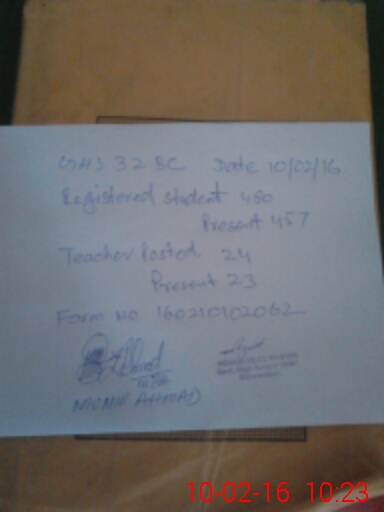 GHS 32 BC Date 10/02/16
Registered student 480
Present 457
Teacher Posted 24
Present 23
Form No 160210102062
10-02-16 10:23